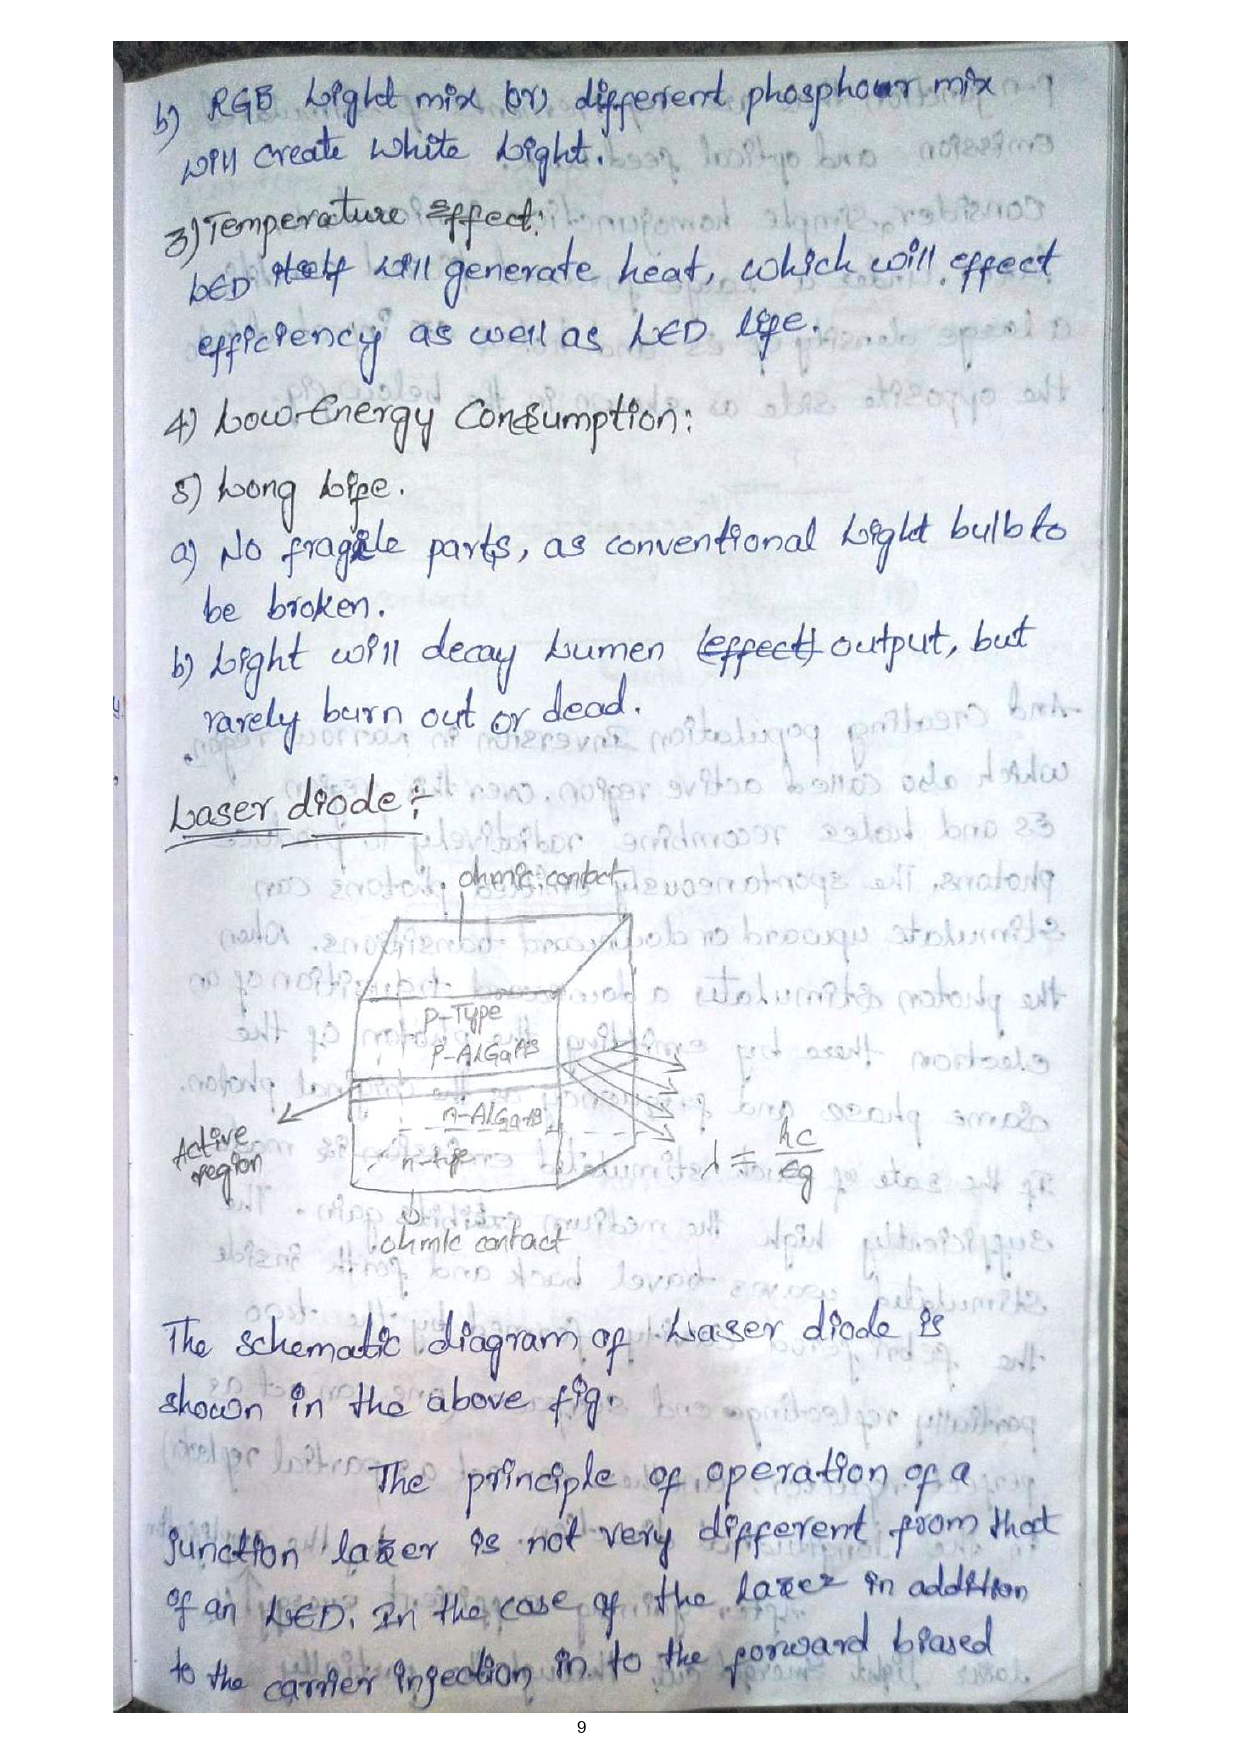 b) RGB Light mix (or) different phosphour mix
will create white Light.
3) Temperature Effect:
LED itself will generate heat, which will effect
efficiency as well as LED life.
4) Low-Energy Consumption:
5) Long Life.
a) No fragile parts, as conventional Light bulb to
be broken.
b) Light will decay Lumen (effect) output, but
rarely burn out or dead.
Laser diode :-
ohmic contact
p-Type
P-AlGaAs
n-AlGaAs
n-type
Active
region
λ = hc/Eg
ohmic contact
The schematic diagram of Laser diode is
shown in the above fig.
The principle of operation of a
junction lazer is not very different from that
of an LED. In the case of the Lazer in addition
to the carrier injection in to the forward biased
9